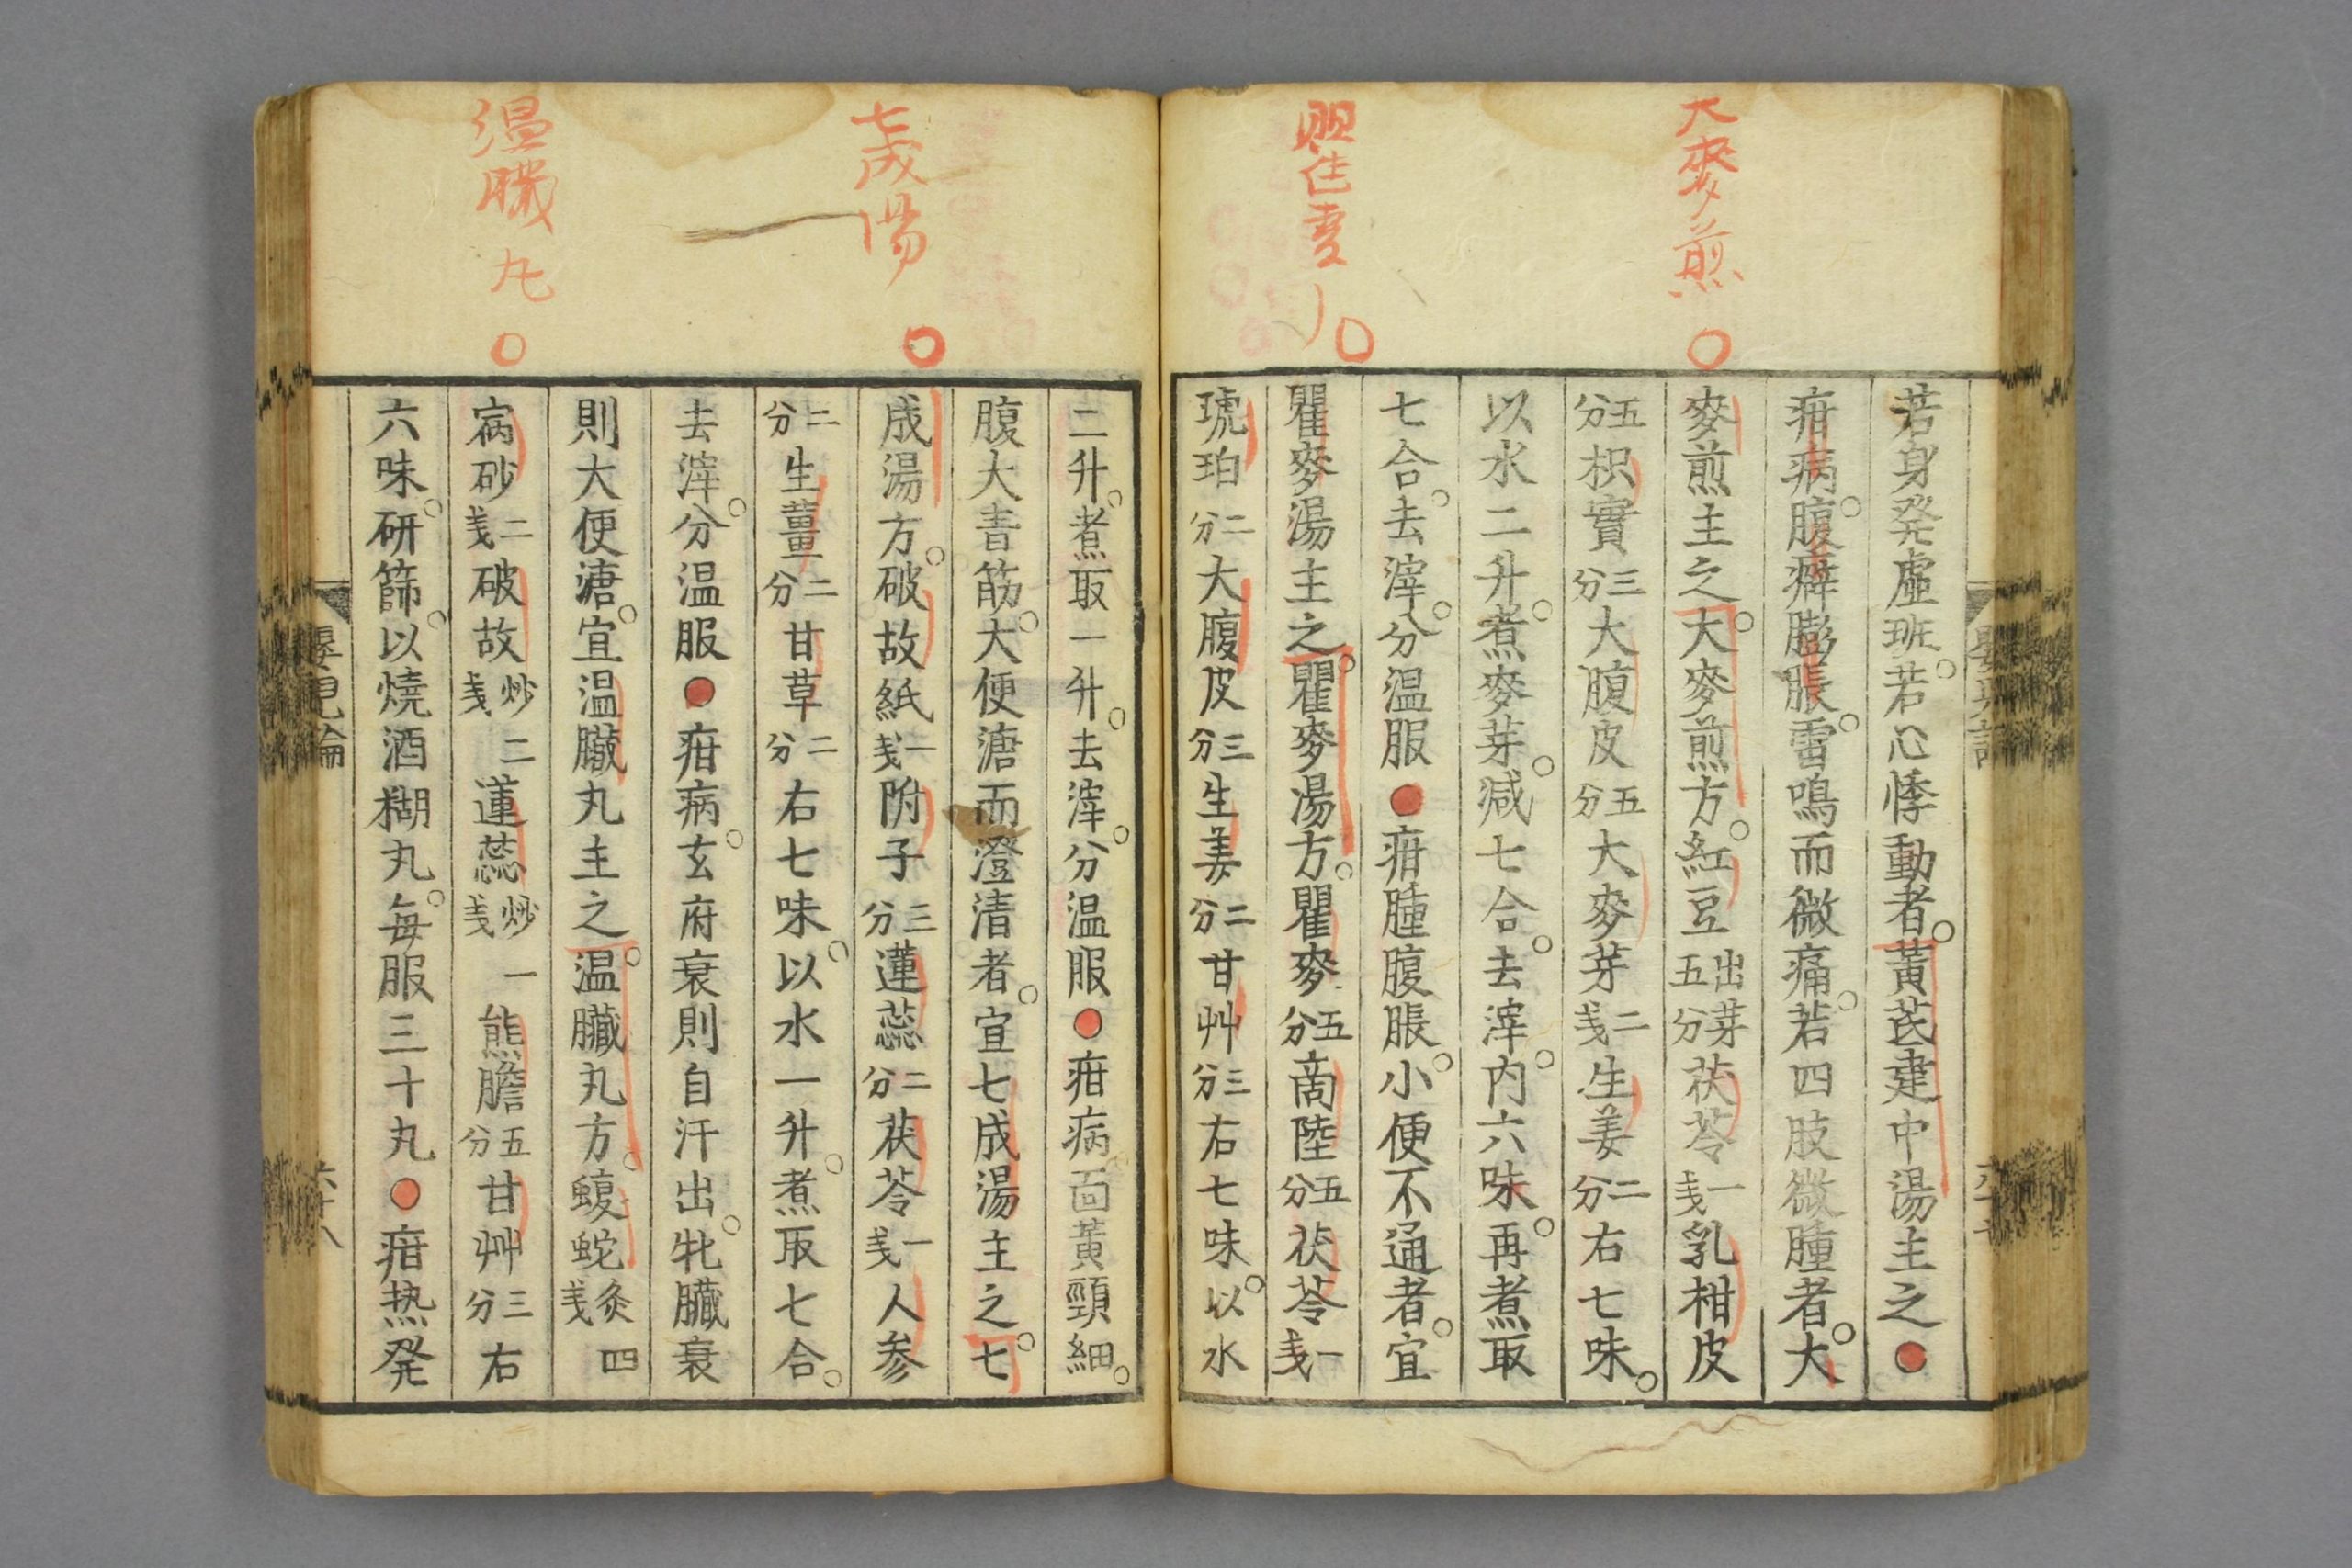 大麥煎
若身発虛班。若心悸動者。黃芪建中湯主之
疳病。腹癖膨脹。雷鳴而微痛。若四肢微腫者。大
麥煎主之。大麥煎方。紅豆出芽五分茯苓一戔乳柑皮
五分枳實三分大腹皮五分大麥芽二戔生姜二分右七味。
以水二升。煮麥芽。減七合。去滓。内六味。再煮取
七合。去滓。分温服●疳腫腹脹。小便不通者。宜
瞿麥湯主之。瞿麥湯方。瞿麥五分商陸五分茯苓一戔
琥珀二分大腹皮三分生姜二分甘艸三分右七味。以水
七成湯
温臟丸
二升。煮取一升。去滓。分温服●疳病。面黃頸細。
腹大青筋。大便溏而澄清者。宜七成湯主之。七
成湯方。破故紙一戔附子三分蓮蕊二分茯苓一戔人参
二分生薑二分甘草二分右七味。以水一升。煮取七合。
去滓。分温服●疳病。玄府衰則自汗出。牝臟衰
則大便溏。宜温臟丸主之。温臟丸方。蝮蛇灸四戔
病砂二戔破故炒二戔蓮蕊炒一戔熊膽五分甘艸三分右
六味。研篩。以燒酒糊丸。每服三十丸●疳热発
嬰兒論
六十八